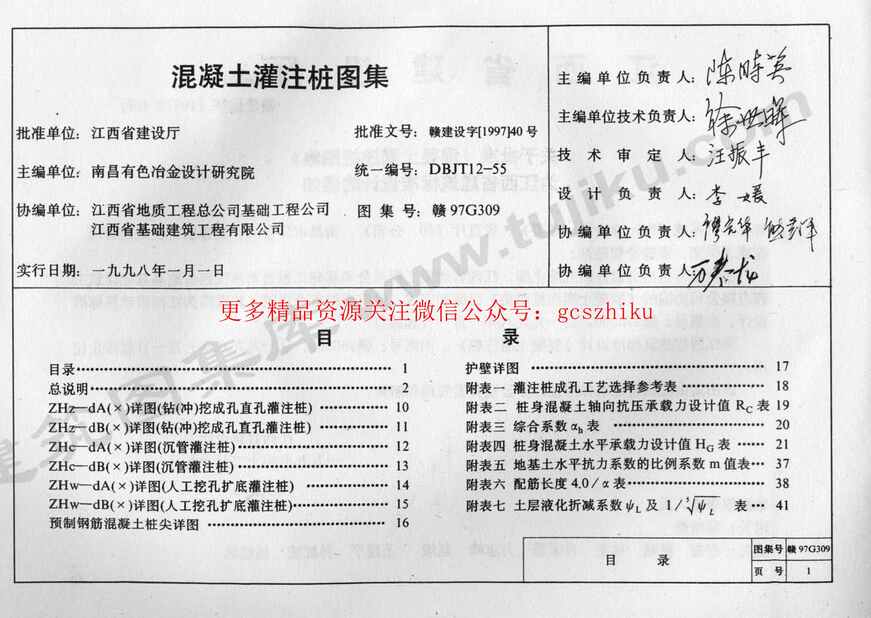 混凝土灌注桩图集
批准单位：江西省建设厅
批准文号：赣建设字[1997]40号
主编单位：南昌有色冶金设计研究院
统一编号：DBJT12-55
协编单位：江西省地质工程总公司基础工程公司
江西省基础建筑工程有限公司
图集号：赣97G309
实行日期：一九九八年一月一日
主编单位负责人：陈时英
主编单位技术负责人：
技术审定人：汪振丰
设计负责人：李媛
协编单位负责人：
协编单位负责人：
www.tujiku.com
建筑图集库
更多精品资源关注微信公众号：gcszhiku
目 录
目录 1
总说明 2
ZHz—dA(×)详图(钻(冲)挖成孔直孔灌注桩) 10
ZHz—dB(×)详图(钻(冲)挖成孔直孔灌注桩) 11
ZHc—dA(×)详图(沉管灌注桩) 12
ZHc—dB(×)详图(沉管灌注桩) 13
ZHw—dA(×)详图(人工挖孔扩底灌注桩) 14
ZHw—dB(×)详图(人工挖孔扩底灌注桩) 15
预制钢筋混凝土桩尖详图 16
护壁详图 17
附表一 灌注桩成孔工艺选择参考表 18
附表二 桩身混凝土轴向抗压承载力设计值 RC 表 19
附表三 综合系数 αh 表 20
附表四 桩身混凝土水平承载力设计值 HG 表 21
附表五 地基土水平抗力系数的比例系数 m 值表 37
附表六 配筋长度 4.0/α 表 38
附表七 土层液化折减系数 ψL 及 1/⁵√ψL 表 41
目 录
图集号 赣97G309
页号 1